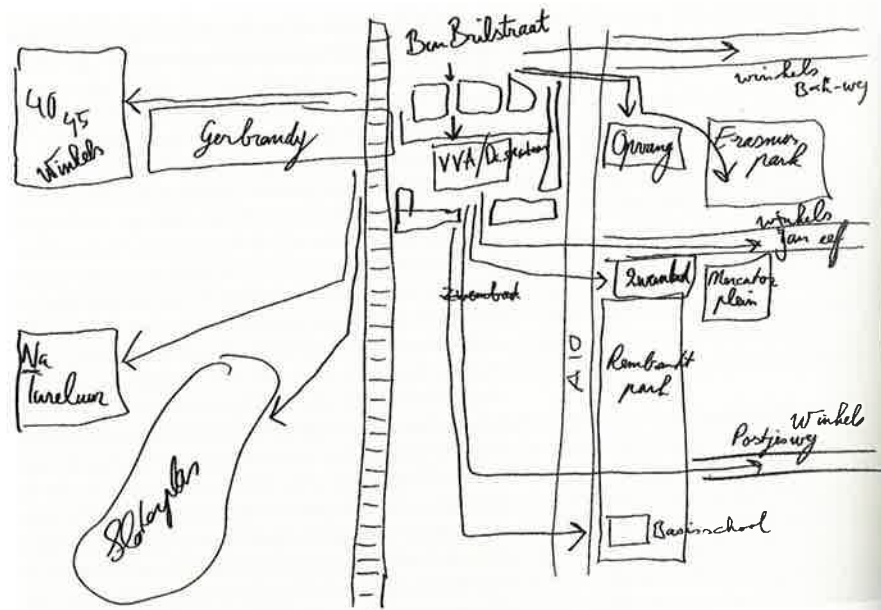 Ben Brilstraat
40
45
Winkels
Gerbrandy
VVA/
Opvang
winkels
Erasmus
park
winkels
Jan eef
Zwembad
Zwembad
Mercator
plein
Na
Tureluur
A10
Rembrandt
park
Winkels
Postjesweg
Sloterplas
Basisschool